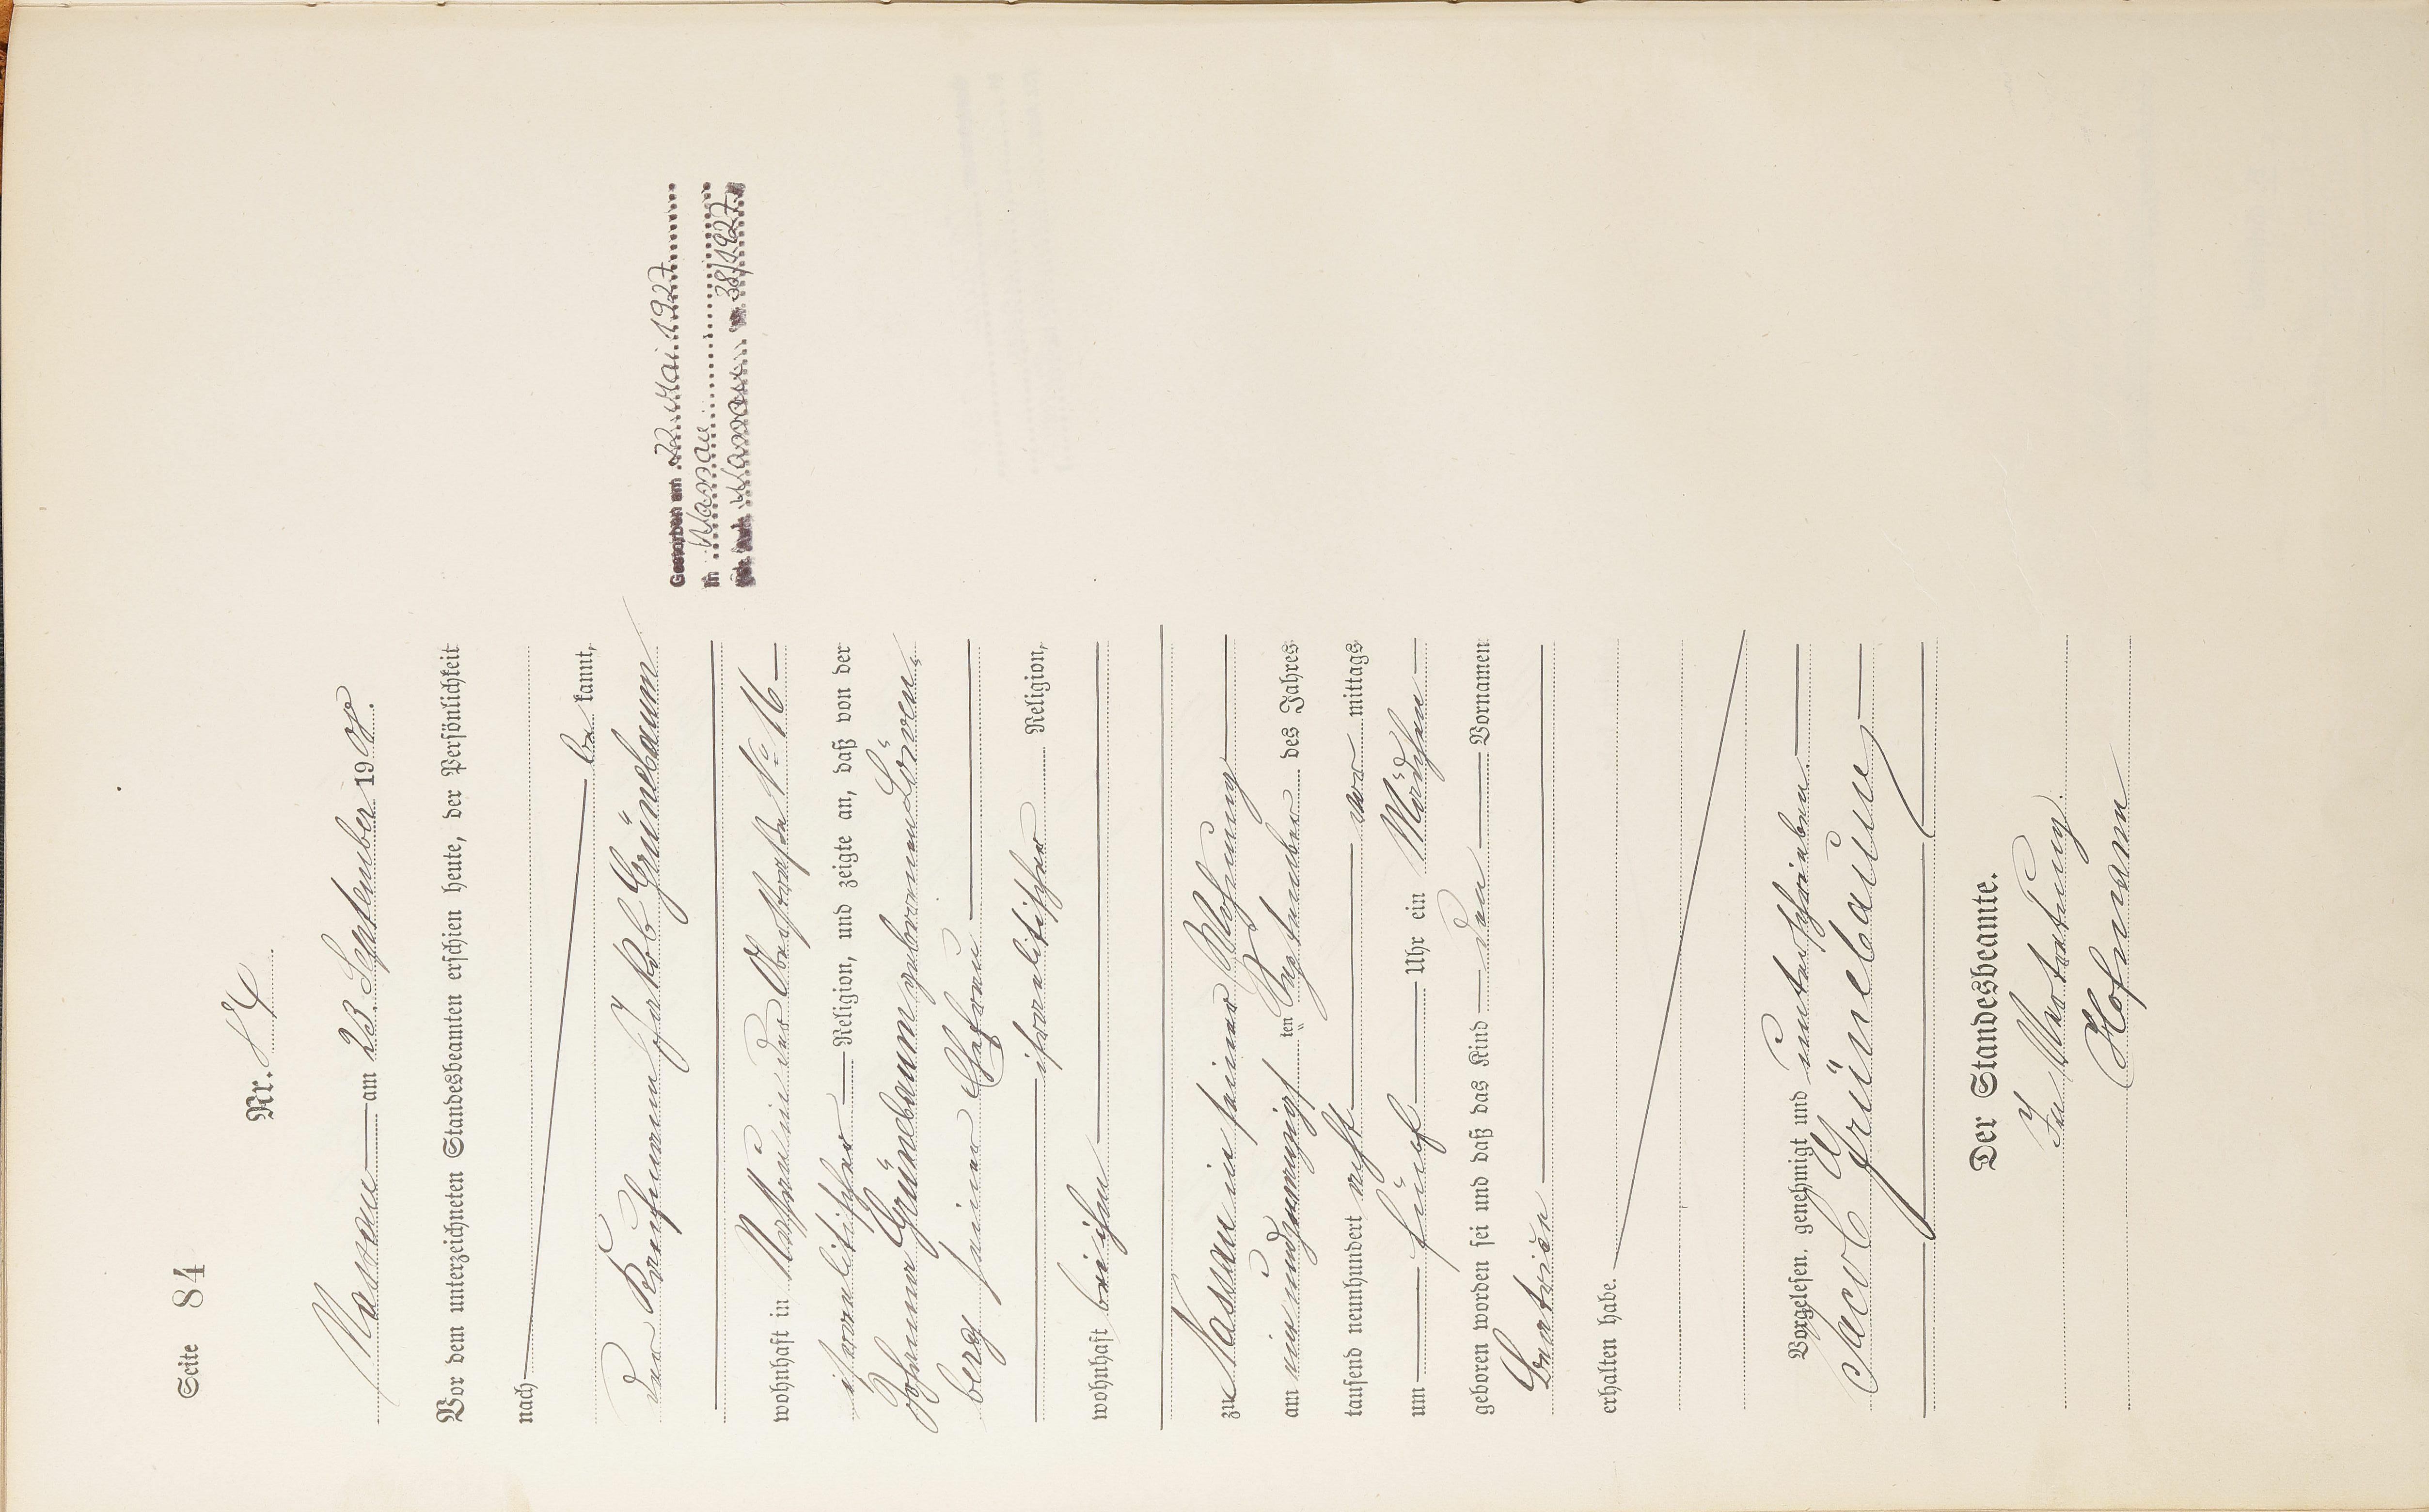 Seite 84
Nr. 84
Nassau am 23. September 1908.
Vor dem unterzeichneten Standesbeamten erschien heute, der Persönlichkeit
nach be kannt,
der Kaufmann Jakob Grünebaum
wohnhaft in Nassau in der Oberstraße No 16
israelitischer Religion, und zeigte an, daß von der
Johanna Grünebaum geborenen Löwen,
berg seiner Ehefrau
israelitischer Religion,
wohnhaft bei ihm
zu Nassau in seiner Wohnung
am ein und zwanzigsten September des Jahres
tausend neunhundert acht vor mittags
um fünf Uhr ein Mädchen
geboren worden sei und daß das Kind den Vornamen
Beatrice
erhalten habe.
Vorgelesen, genehmigt und unterschrieben.
Jacob Grünebaum
Der Standesbeamte.
In Vertretung.
Hofmann
Gestorben am 22. Mai 1927
in Nassau
Nassau 38/1927